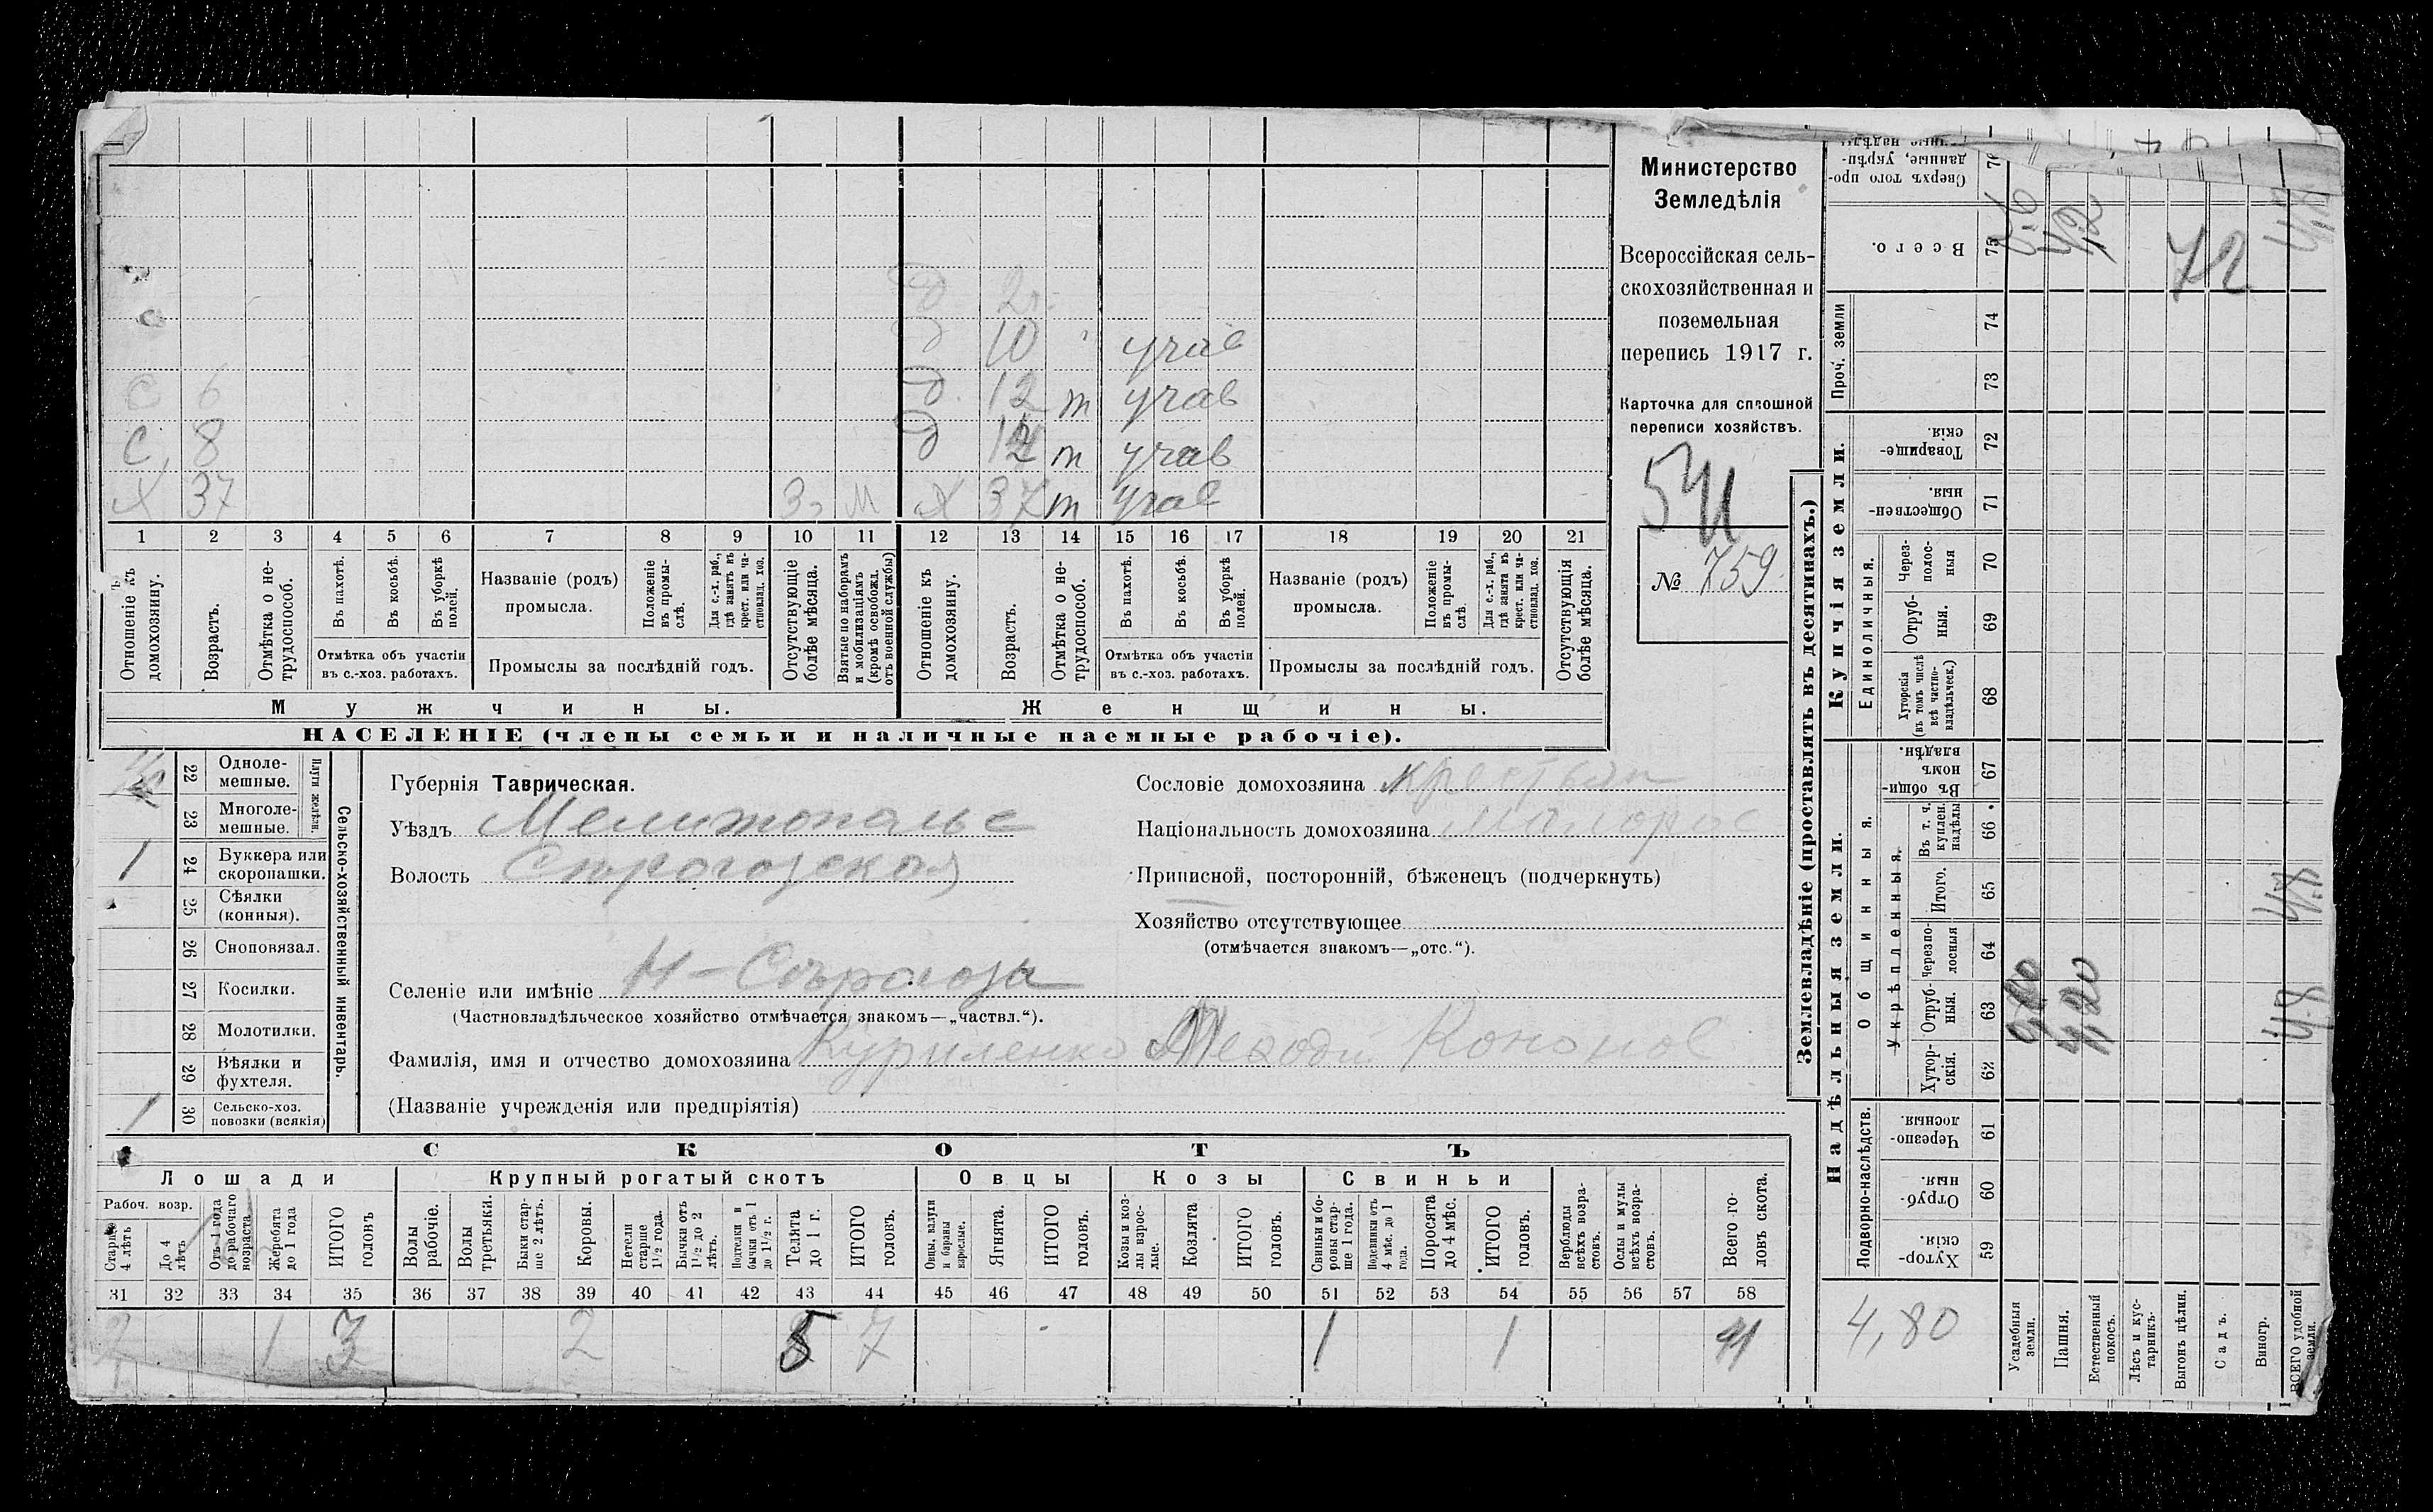 Министерство
Земледѣлія
Всероссійская сель-
скохозяйственная и
поземельная
перепись 1917 г.
Карточка для сплошной
переписи хозяйствъ.
№ 759.
д 2
д 10 учав
с 6 д. 12 т учав
с 8 д т учав
х 37 3 м х 37 т учав
1 2 3 4 5 6 7 8 9 10 11 12 13 14 15 16 17 18 19 20 21
Отношеніе къ домохозяину.
Возрастъ.
Отмѣтка о не-трудоспособ.
Въ пахотѣ.
Въ косьбѣ.
Въ уборкѣ полей.
Отмѣтка объ участіи
въ с.-хоз. работахъ.
Названіе (родъ)
промысла.
Положеніе въ промы-слѣ.
Для с.-х. раб., гдѣ занятъ въ крест. или ча-стновлад. хоз.
Промыслы за послѣдній годъ.
Отсутствующіе болѣе мѣсяца.
Взятые по наборамъ и мобилизаціямъ (кромѣ освобожд. отъ военной службы)
Отношеніе къ домохозяину.
Возрастъ.
Отмѣтка о не-трудоспособ.
Въ пахотѣ.
Въ косьбѣ.
Въ уборкѣ полей.
Отмѣтка объ участіи
въ с.-хоз. работахъ.
Названіе (родъ)
промысла.
Положеніе въ промы-слѣ.
Для с.-х. раб., гдѣ занята въ крест. или ча-стновлад. хоз.
Промыслы за послѣдній годъ.
Отсутствующія болѣе мѣсяца.
Мужчины.
Женщины.
НАСЕЛЕНІЕ (члены семьи и наличные наемные рабочіе).
Сельско-хозяйственный инвентарь.
Плуги желѣзн.
22 Одноле-
мешные.
23 Многоле-
мешные.
1 24 Буккера или
скоропашки.
25 Сѣялки
(конныя).
26 Сноповязал.
27 Косилки.
28 Молотилки.
29 Вѣялки и
фухтеля.
1 30 Сельско-хоз.
повозки (всякія)
Губернія Таврическая.
Уѣздъ Мелитопольс
Волость Сѣрогозская
Селеніе или имѣніе Н-Сѣрогозы
(Частновладѣльческое хозяйство отмѣчается знакомъ—„частвл.“).
Фамилія, имя и отчество домохозяина Куриленко Мефоди Кононов
(Названіе учрежденія или предпріятія)
Сословіе домохозяина крестьян
Національность домохозяина малорос
Приписной, посторонній, бѣженецъ (подчеркнуть)
Хозяйство отсутствующее
(отмѣчается знакомъ—„отс.“).
СКОТЪ
Лошади
Крупный рогатый скотъ
Овцы
Козы
Свиньи
Рабоч. возр.
Старше 4 лѣтъ
До 4 лѣтъ
Отъ 1 года до рабочаго возраста
Жеребята до 1 года
ИТОГО головъ
Волы рабочіе.
Волы третьяки.
Быки стар-ше 2 лѣтъ.
Коровы.
Нетели старше 1½ года.
Бычки отъ 1½ до 2 лѣтъ.
Подтелки и бычки отъ 1 до 1½ г.
Телята до 1 г.
ИТОГО головъ.
Овцы, валухи и бараны взрослые.
Ягнята.
ИТОГО головъ.
Козы и коз-лы взрос-лые.
Козлята
ИТОГО головъ.
Свиньи и бо-ровы стар-ше 1 года.
Подсвинки отъ 4 мѣс. до 1 года.
Поросята до 4 мѣс.
ИТОГО головъ.
Верблюды всѣхъ возра-стовъ.
Ослы и мулы всѣхъ возра-стовъ.
Всего го-ловъ скота.
31 32 33 34 35 36 37 38 39 40 41 42 43 44 45 46 47 48 49 50 51 52 53 54 55 56 57 58
2 1 3 2 5 7 1 1 11
Землевладѣніе (проставлять въ десятинахъ.)
Надѣльныя земли.
Купчія земли.
Проч. земли
Подворно-наслѣдств.
Общинныя.
Укрѣпленныя.
Единоличныя.
Всего.
Сверхъ того про-данные, укрѣп-
75
74
73
Товарище-скія. 72
Обществен-ныя. 71
Через-полос-ныя 70
Отруб-ныя. 69
Хуторскія (въ томъ числѣ всѣ частно-владѣльческ.) 68
Въ общин-номъ владѣн. 67
Въ т. ч. куплен. надѣлы 66
Итого. 65
Черезпо-лосныя 64
Отруб-ныя. 63
Хутор-скія. 62
Черезпо-лосныя 61
Отруб-ныя. 60
Хутор-скія. 59
72
4,8
4,8
4,20
4,80
Усадебныя земли.
Пашня.
Естественный покосъ.
Лѣсъ и кус-тарникъ.
Выгонъ цѣлин.
Садъ.
Виногр.
ВСЕГО удобной земли.